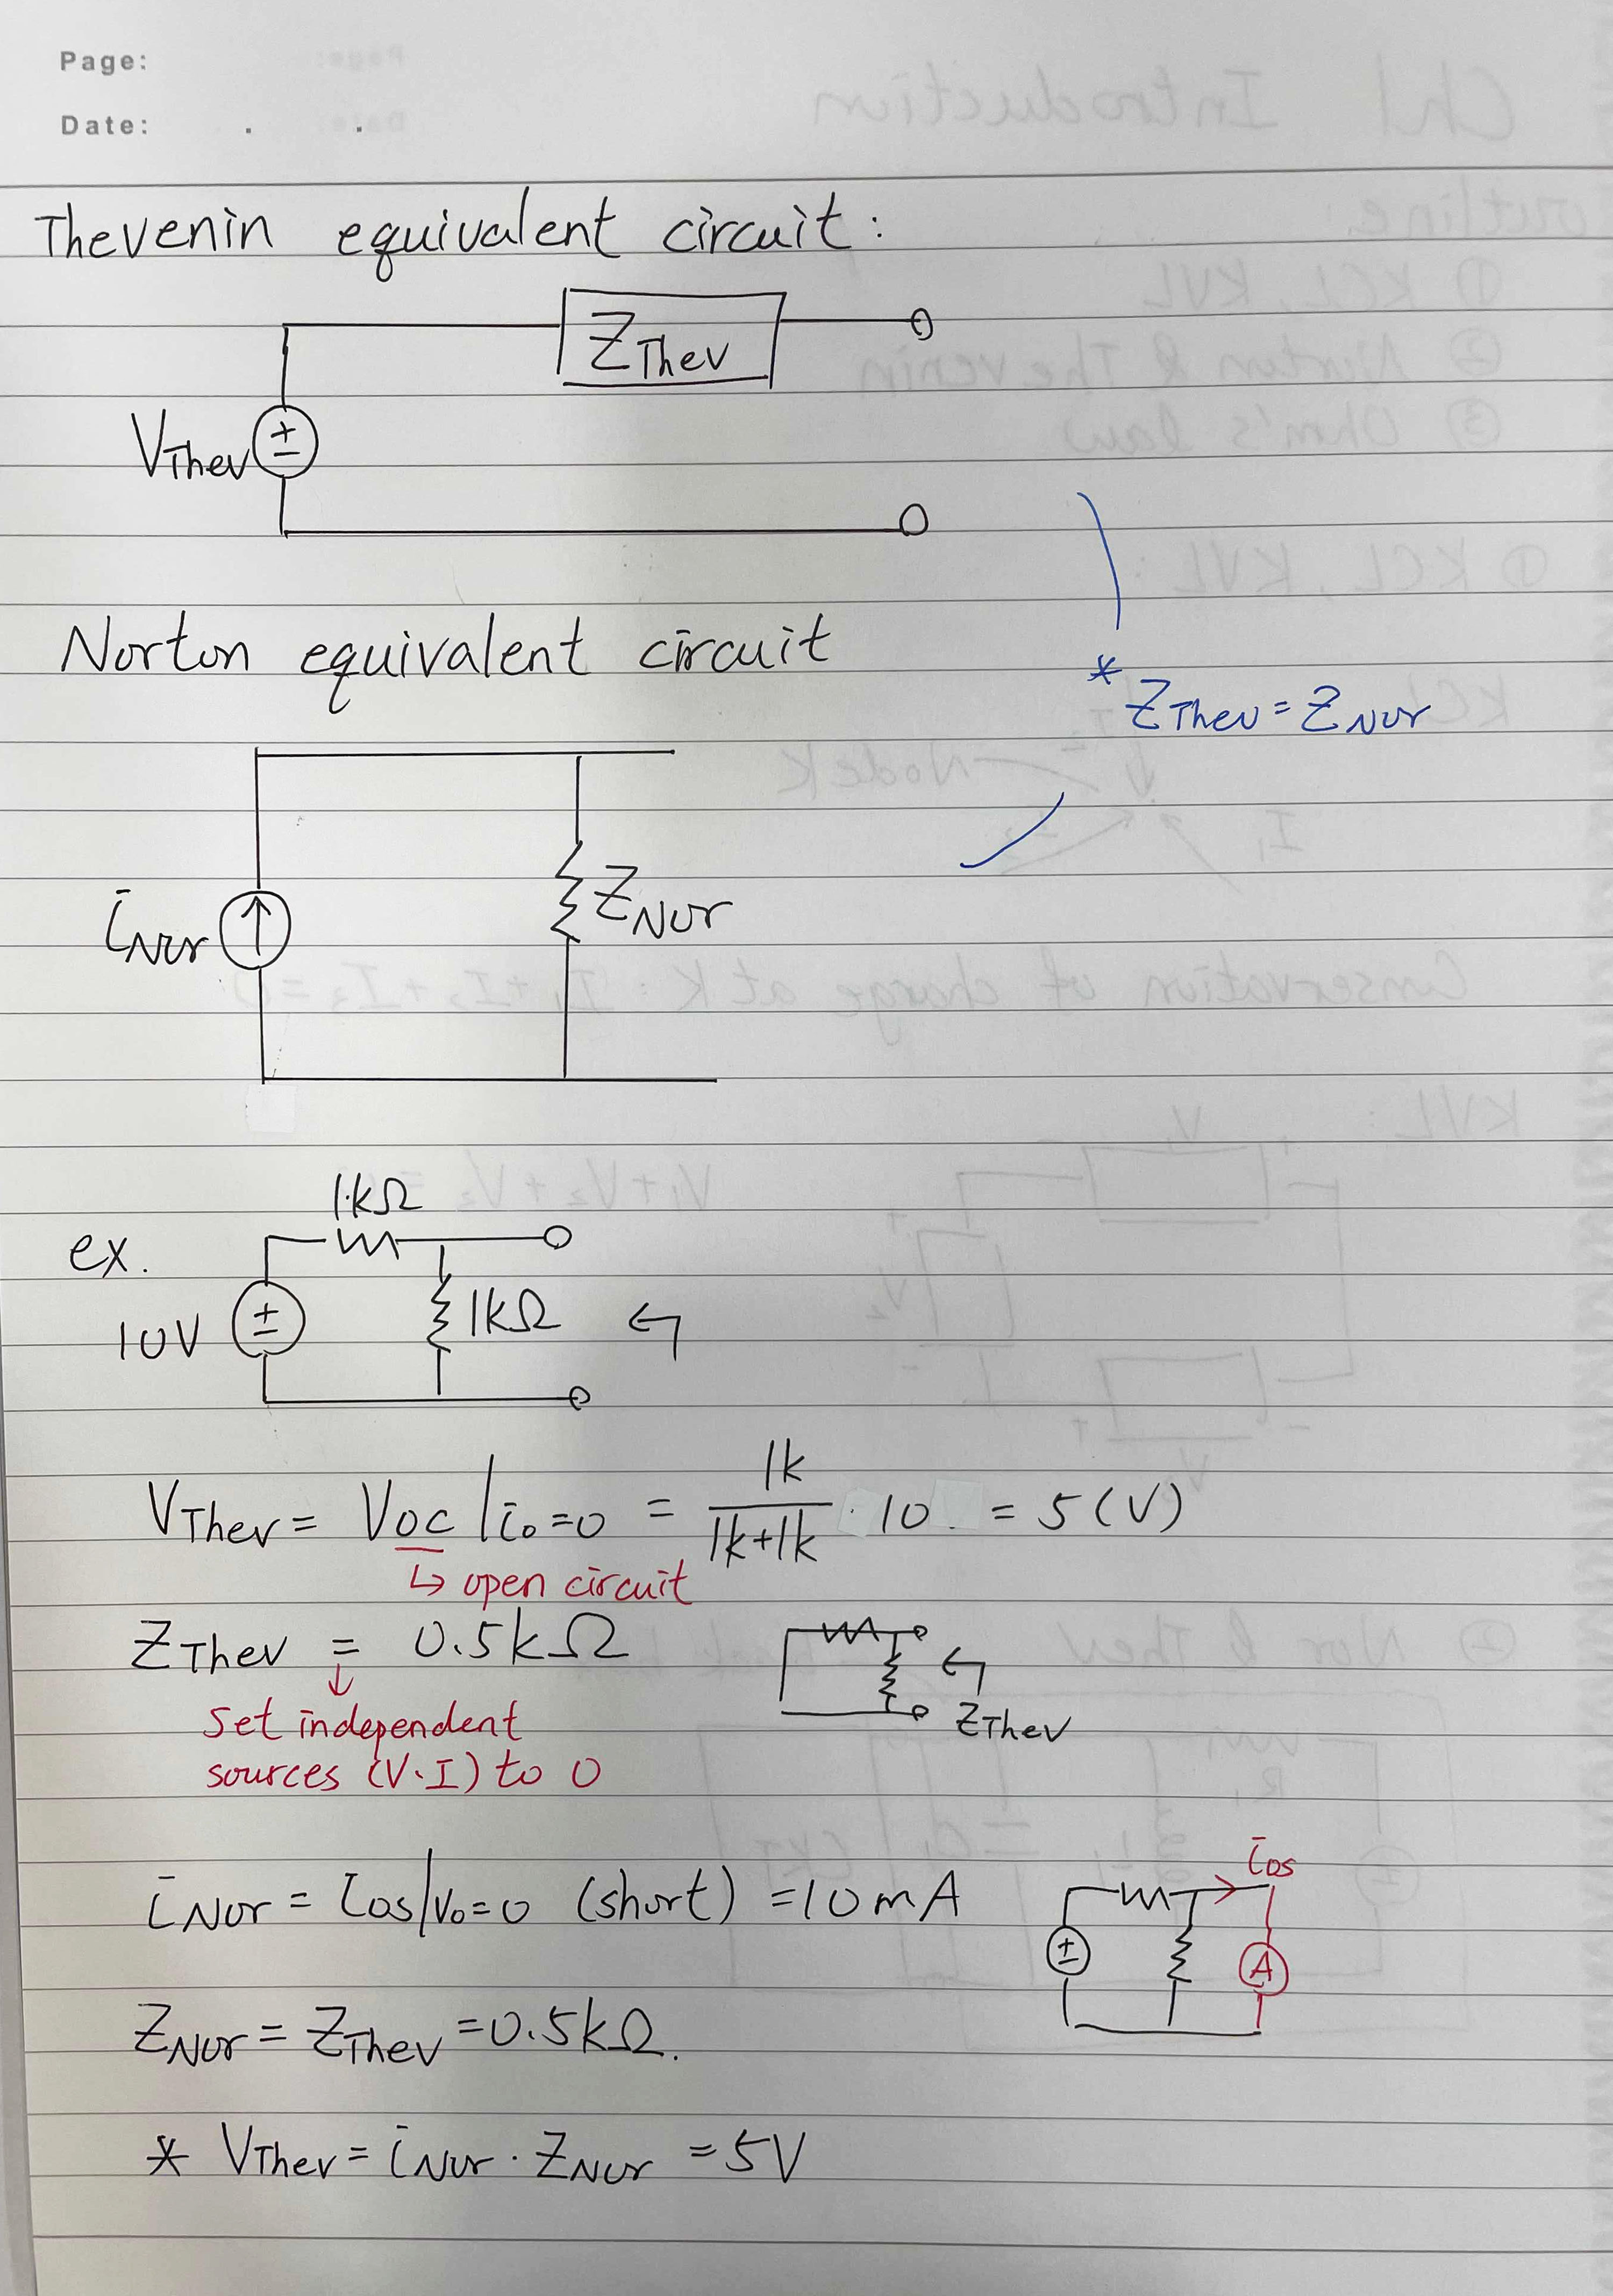 Page:
Date: . .
Thevenin equivalent circuit:
ZThev
VThev
+
-
Norton equivalent circuit
* ZThev = ZNor
iNor
ZNor
1kΩ
ex.
10V
+
-
1kΩ
VThev = Voc |io=0 = 1k / 1k+1k · 10 = 5 (V)
↳ open circuit
ZThev = 0.5kΩ
ZThev
↓
Set independent
sources (V.I) to 0
ios
iNor = ios|Vo=0 (short) = 10mA
+
-
A
ZNor = ZThev = 0.5kΩ.
* VThev = iNor · ZNor = 5V